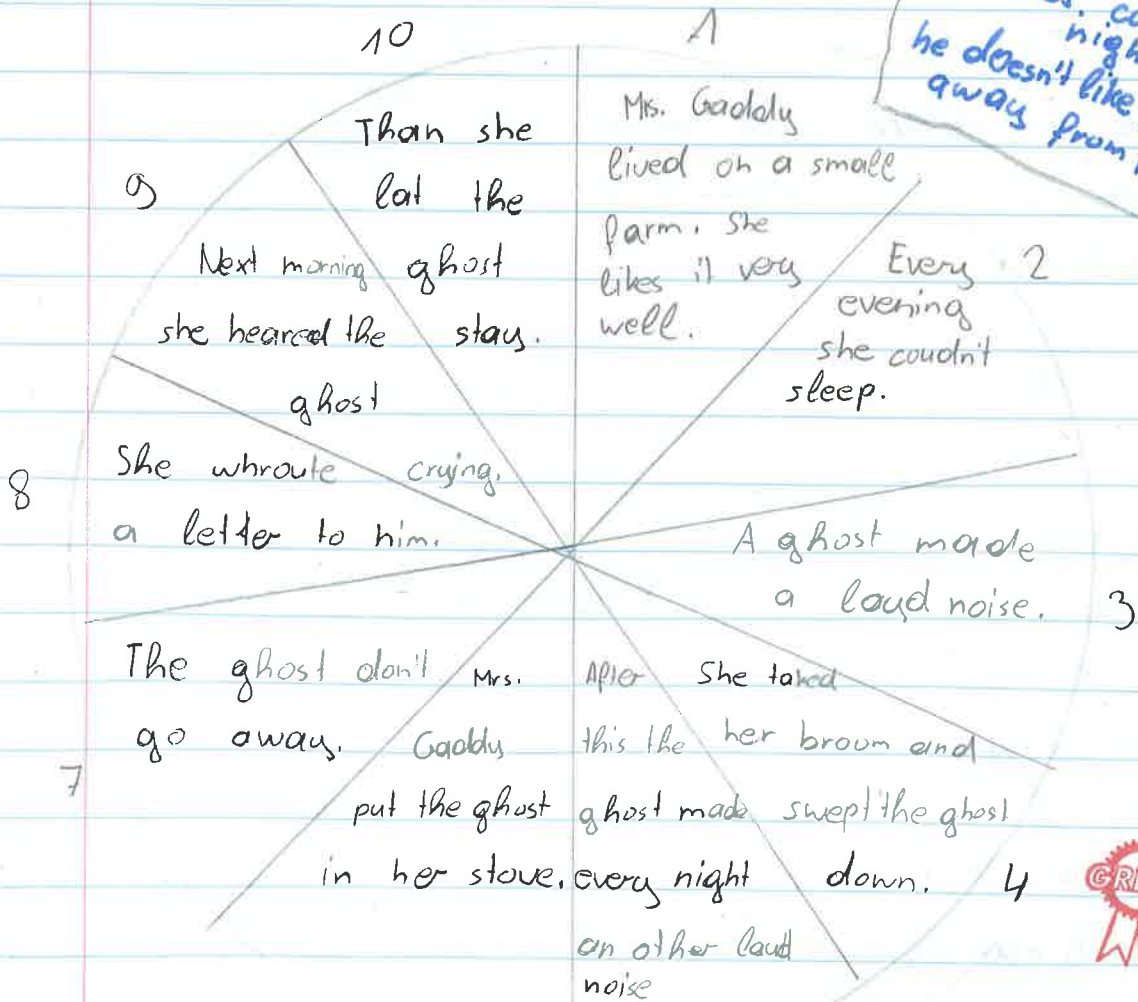 10
1
nigh
he doesn't like
away from
Mrs. Gaddy
lived on a small
farm. She
likes it very
well.
Every 2
evening
she coudn't
sleep.
A ghost made
a loud noise. 3
She taked
her broom and
swept the ghost
down. 4
After
this the
ghost made
every night
an other loud
noise
Mrs.
Gaddy
put the ghost
in her stove.
The ghost don't
go away.
7
8
She whroute
a letter to him.
9
Next morning
she heared the
ghost
crying.
Than she
lat the
ghost
stay.